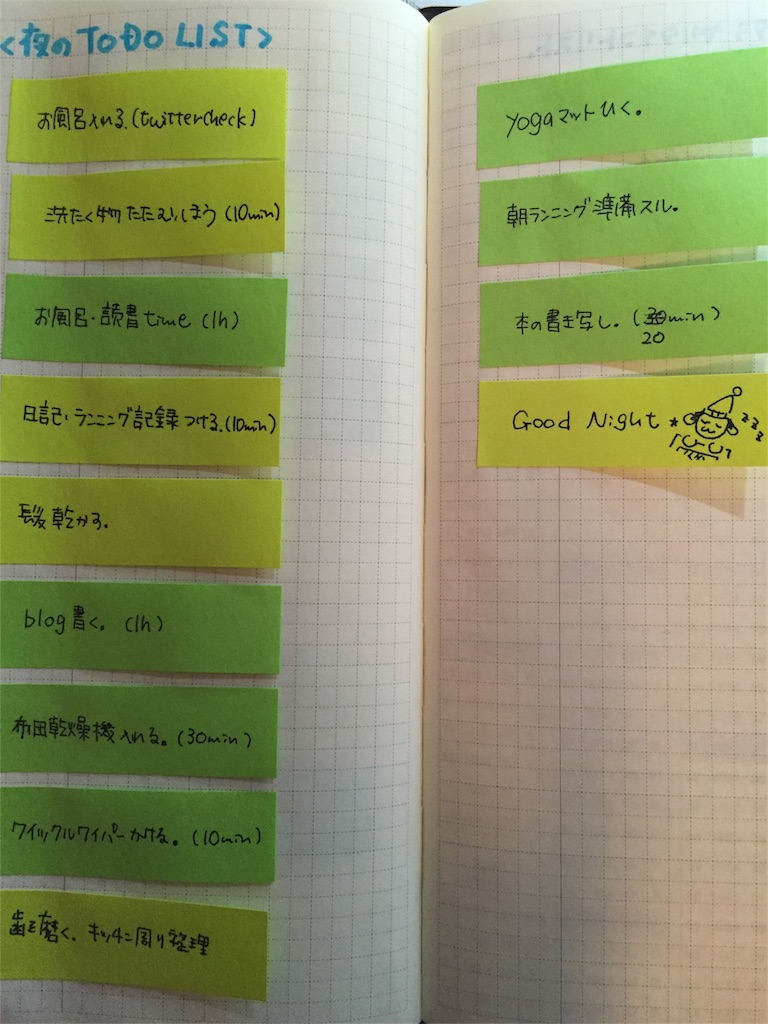 <夜のTODO LIST>
お風呂入れる.(twittercheck)
洗たく物たたむ,しまう(10min)
お風呂・読書time (1h)
日記・ランニング記録つける.(10min)
髪乾かす。
blog書く。(1h)
布団乾燥機入れる。(30min)
クイックルワイパーかける。(10min)
歯を磨く。キッチン周り整理
yogaマットひく。
朝ランニング準備スル。
本の書き写し。(30min)
20
Good Night
zzz